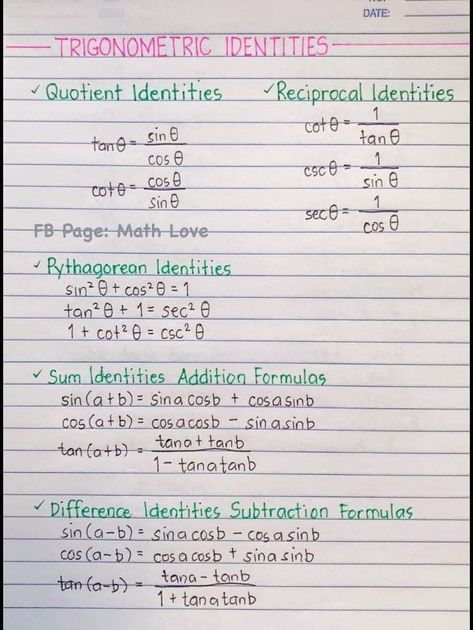 DATE:
TRIGONOMETRIC IDENTITIES
✓ Quotient Identities
tanθ = sinθ / cosθ
cotθ = cosθ / sinθ
✓ Reciprocal Identities
cotθ = 1 / tanθ
cscθ = 1 / sinθ
secθ = 1 / cosθ
FB Page: Math Love
✓ Pythagorean Identities
sin² θ + cos² θ = 1
tan² θ + 1 = sec² θ
1 + cot² θ = csc² θ
✓ Sum Identities Addition Formulas
sin(a+b) = sina cosb + cosa sinb
cos(a+b) = cosa cosb - sina sinb
tan(a+b) = tana + tanb / 1 - tana tanb
✓ Difference Identities Subtraction Formulas
sin(a-b) = sina cosb - cosa sinb
cos(a-b) = cosa cosb + sina sinb
tan(a-b) = tana - tanb / 1 + tana tanb